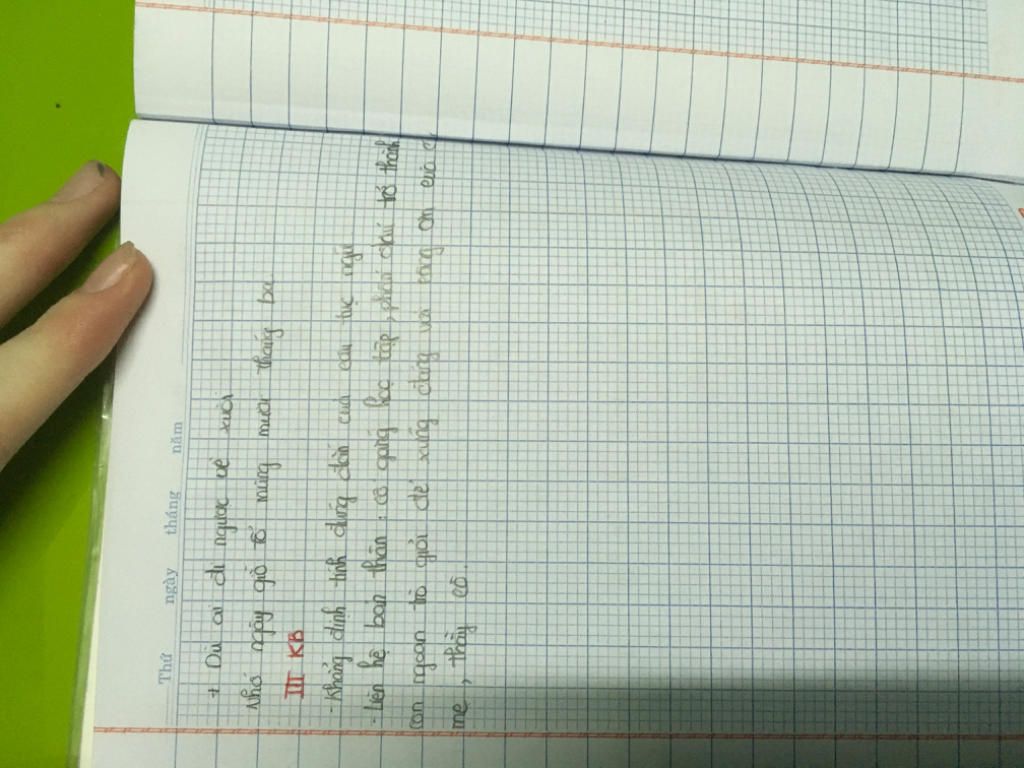 Thứ ngày tháng năm
+ Dù ai đi ngược về xuôi
Nhớ ngày giỗ tổ mùng mười tháng ba
III KB
- Khẳng định tính đúng đắn của câu tục ngữ
- Liên hệ bản thân : cố gắng học tập, phấn đấu trở thành
con ngoan trò giỏi để xứng đáng với công ơn của
mẹ, thầy cô.